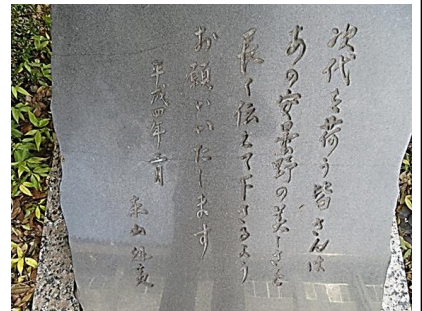 次代を荷う皆さんは
あの安曇野の美しさを
長く伝えて下さるよう
お願いいたします
平成四年二月
東山魁夷